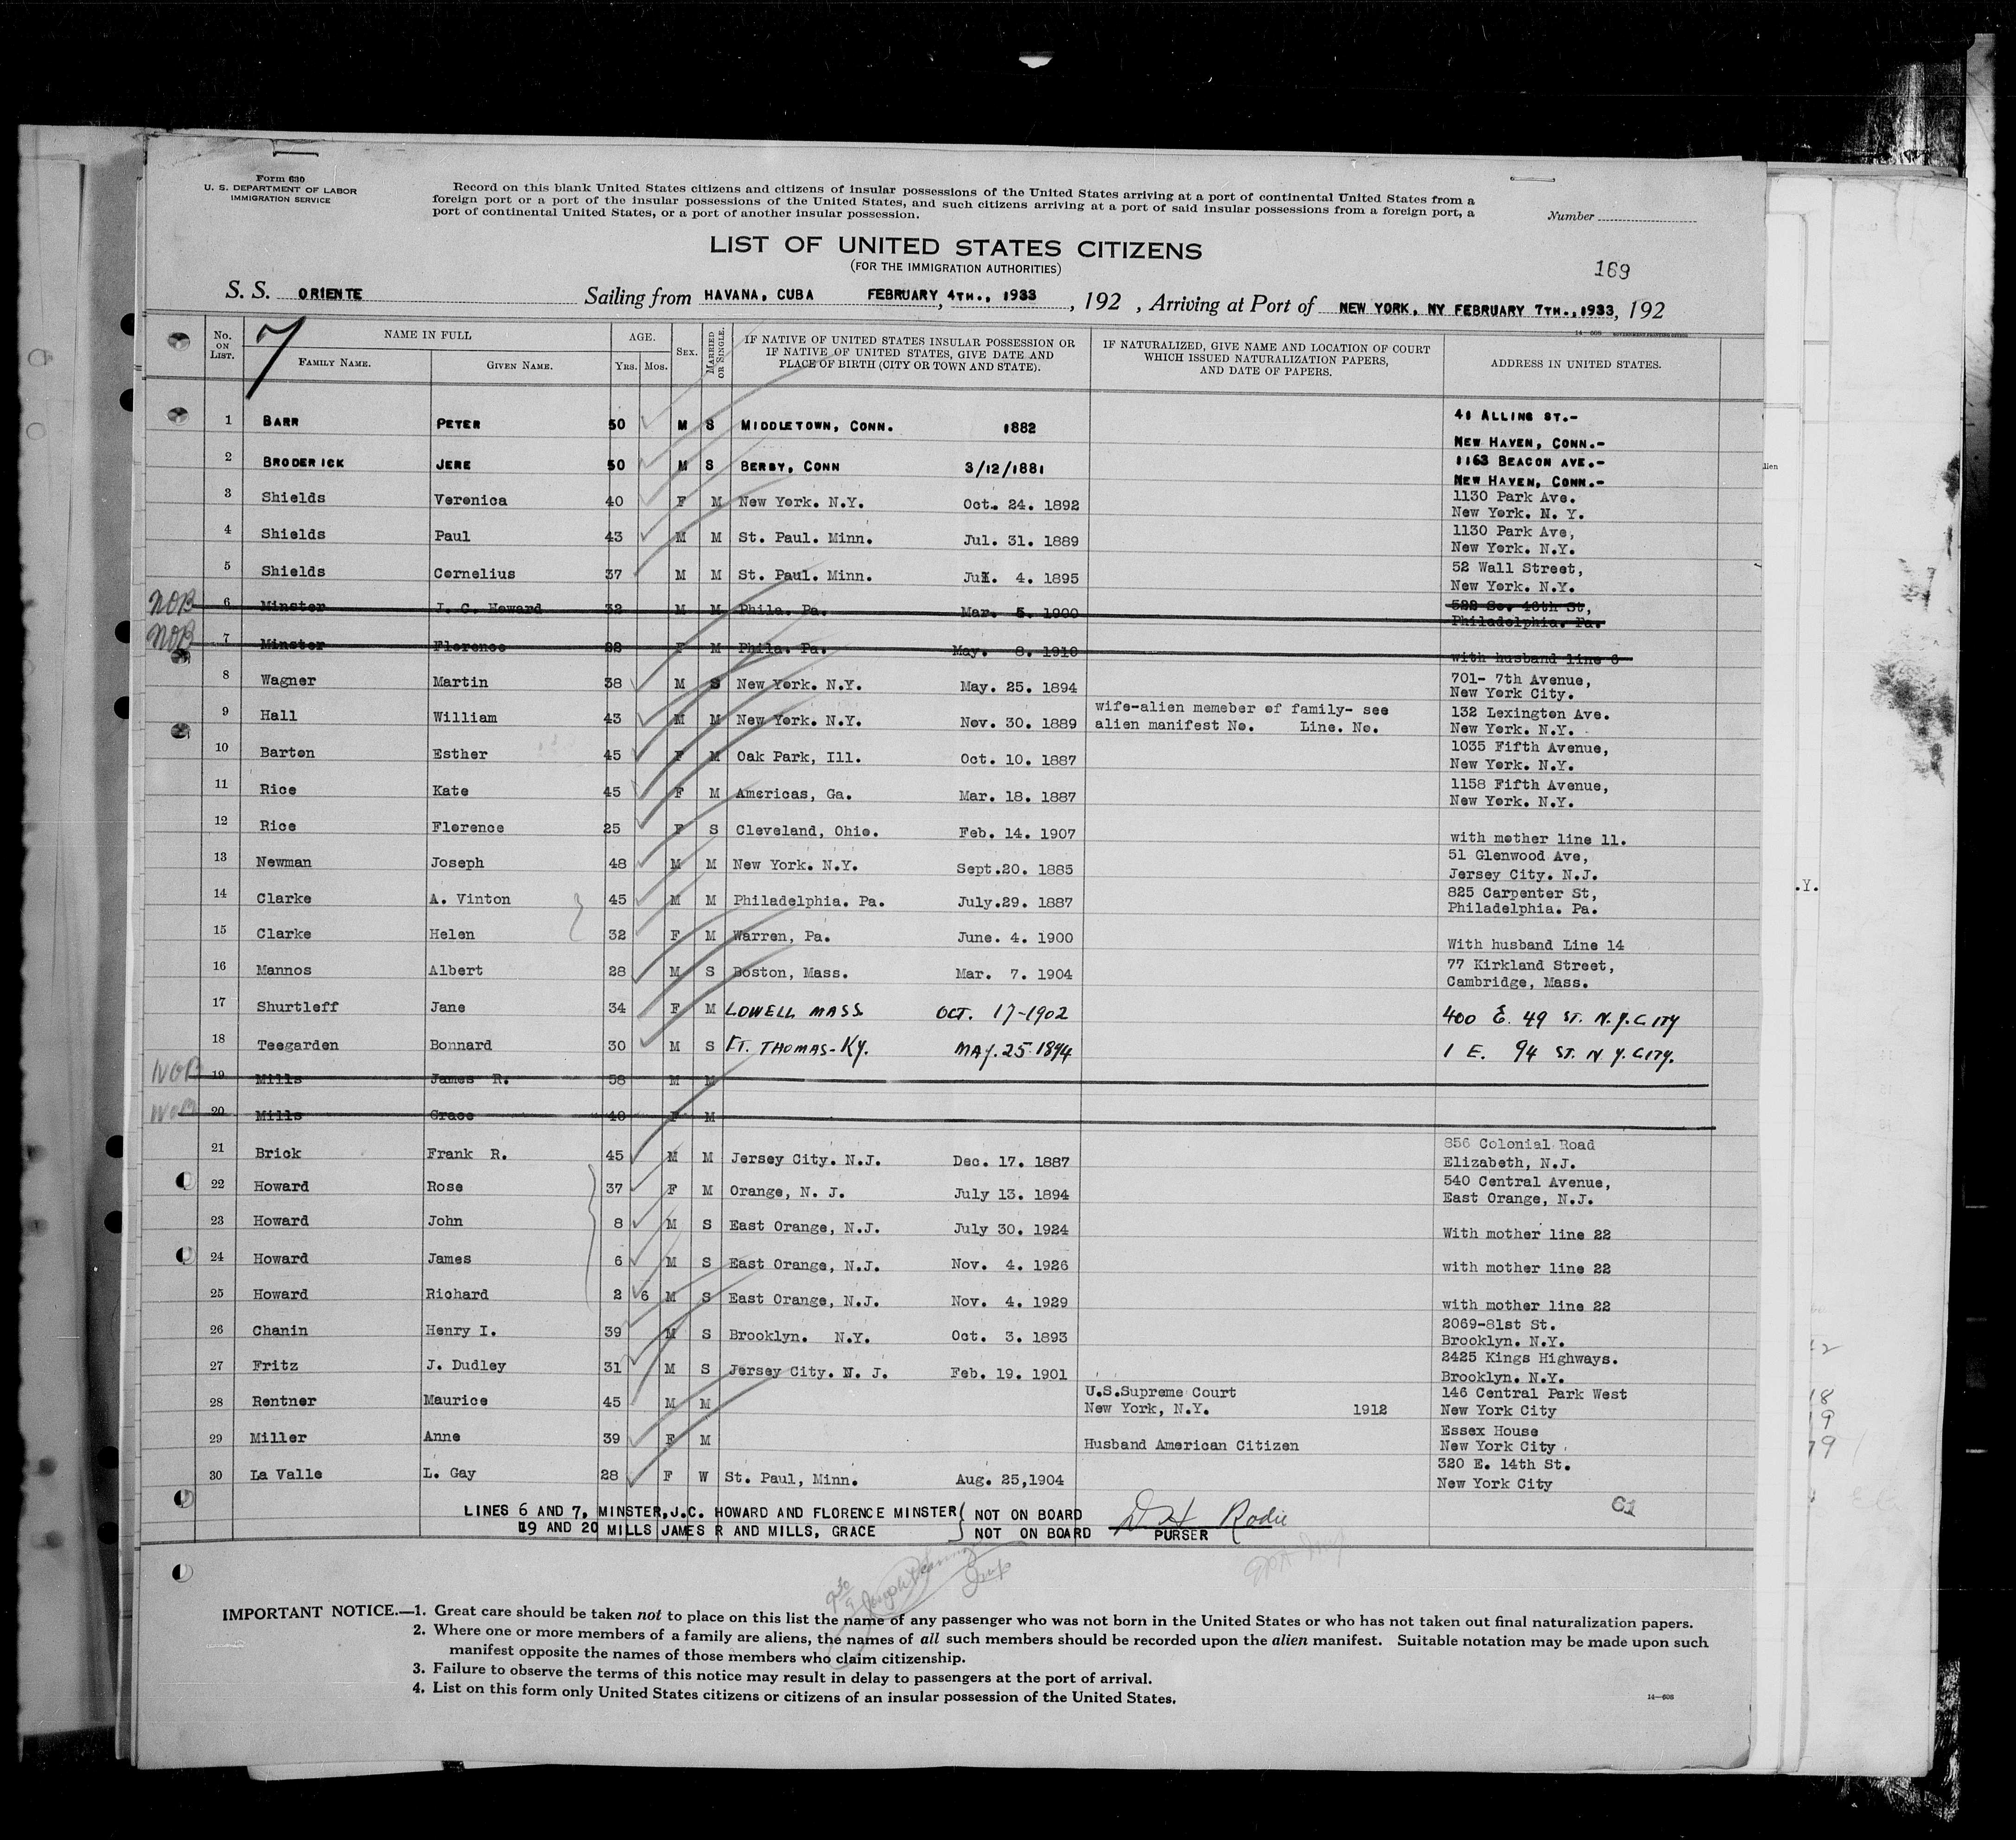 Form 630
U. S. DEPARTMENT OF LABOR
IMMIGRATION SERVICE
Record on this blank United States citizens and citizens of insular possessions of the United States arriving at a port of continental United States from a
foreign port or a port of the insular possessions of the United States, and such citizens arriving at a port of said insular possessions from a foreign port, a
port of continental United States, or a port of another insular possession.
Number
LIST OF UNITED STATES CITIZENS
(FOR THE IMMIGRATION AUTHORITIES)
169
S. S. ORIENTE Sailing from HAVANA, CUBA FEBRUARY 4TH., 1933, 192 , Arriving at Port of NEW YORK, NY FEBRUARY 7TH.,1933, 192
7
No. ON LIST. NAME IN FULL FAMILY NAME. GIVEN NAME. AGE. YRS. MOS. SEX. MARRIED OR SINGLE. IF NATIVE OF UNITED STATES INSULAR POSSESSION OR IF NATIVE OF UNITED STATES, GIVE DATE AND PLACE OF BIRTH (CITY OR TOWN AND STATE). IF NATURALIZED, GIVE NAME AND LOCATION OF COURT WHICH ISSUED NATURALIZATION PAPERS, AND DATE OF PAPERS. ADDRESS IN UNITED STATES.
1 BARR PETER 50 M S MIDDLETOWN, CONN. 1882 41 ALLING ST.-
NEW HAVEN, CONN.-
2 BRODERICK JERE 50 M S BERBY, CONN 3/12/1881 1163 BEACON AVE.-
NEW HAVEN, CONN.-
3 Shields Veronica 40 F M New York. N.Y. Oct. 24. 1892 1130 Park Ave.
New York. N. Y.
4 Shields Paul 43 M M St. Paul. Minn. Jul. 31. 1889 1130 Park Ave,
New York. N.Y.
5 Shields Cornelius 37 M M St. Paul. Minn. 4. 1895 52 Wall Street,
New York. N.Y.
NOB 6 Minster J. C. Howard 32 M M Phila. Pa. Mar. 5. 1900 522 So. 46th St,
Philadelphia. Pa.
NOB 7 Minster Florence 22 F M Phila. Pa. May. 8. 1910 with husband line 6
8 Wagner Martin 38 M S New York. N.Y. May. 25. 1894 701- 7th Avenue,
New York City.
9 Hall William 43 M M New York. N.Y. Nov. 30. 1889 wife-alien memeber of family- see 132 Lexington Ave.
alien manifest No. Line. No. New York. N.Y.
10 Barton Esther 45 F M Oak Park, Ill. Oct. 10. 1887 1035 Fifth Avenue,
New York. N.Y.
11 Rice Kate 45 F M Americas, Ga. Mar. 18. 1887 1158 Fifth Avenue,
New York. N.Y.
12 Rice Florence 25 F S Cleveland, Ohio. Feb. 14. 1907 with mother line 11.
13 Newman Joseph 48 M M New York. N.Y. Sept.20. 1885 51 Glenwood Ave,
Jersey City. N.J.
14 Clarke A. Vinton 45 M M Philadelphia. Pa. July.29. 1887 825 Carpenter St,
Philadelphia. Pa.
15 Clarke Helen 32 F M Warren, Pa. June. 4. 1900 With husband Line 14
16 Mannos Albert 28 M S Boston, Mass. Mar. 7. 1904 77 Kirkland Street,
Cambridge, Mass.
17 Shurtleff Jane 34 F M LOWELL MASS OCT. 17-1902 400 E. 49 ST. N.Y. CITY
18 Teegarden Bonnard 30 M S FT. THOMAS-KY. MAY. 25-1894 1 E. 94 ST. N Y. CITY.
NOB 19 Mills James R. 58 M M
NOB 20 Mills Grace 40 F M
21 Brick Frank R. 45 M M Jersey City. N.J. Dec. 17. 1887 856 Colonial Road
Elizabeth, N.J.
22 Howard Rose 37 F M Orange, N. J. July 13. 1894 540 Central Avenue,
East Orange, N.J.
23 Howard John 8 M S East Orange, N.J. July 30. 1924 With mother line 22
24 Howard James 6 M S East Orange, N.J. Nov. 4. 1926 with mother line 22
25 Howard Richard 2 6 M S East Orange, N.J. Nov. 4. 1929 with mother line 22
26 Chanin Henry I. 39 M S Brooklyn. N.Y. Oct. 3. 1893 2069-81st St.
Brooklyn. N.Y.
27 Fritz J. Dudley 31 M S Jersey City. N. J. Feb. 19. 1901 2425 Kings Highways.
Brooklyn. N.Y.
28 Rentner Maurice 45 M M U.S.Supreme Court 146 Central Park West
New York, N.Y. 1912 New York City
29 Miller Anne 39 F M Husband American Citizen Essex House
New York City
30 La Valle L. Gay 28 F W St. Paul, Minn. Aug. 25,1904 320 E. 14th St.
New York City
61
LINES 6 AND 7, MINSTER,J.C. HOWARD AND FLORENCE MINSTER NOT ON BOARD
19 AND 20 MILLS JAMES R AND MILLS, GRACE NOT ON BOARD
PURSER
IMPORTANT NOTICE.—1. Great care should be taken not to place on this list the name of any passenger who was not born in the United States or who has not taken out final naturalization papers.
2. Where one or more members of a family are aliens, the names of all such members should be recorded upon the alien manifest. Suitable notation may be made upon such
manifest opposite the names of those members who claim citizenship.
3. Failure to observe the terms of this notice may result in delay to passengers at the port of arrival.
4. List on this form only United States citizens or citizens of an insular possession of the United States.
14—608